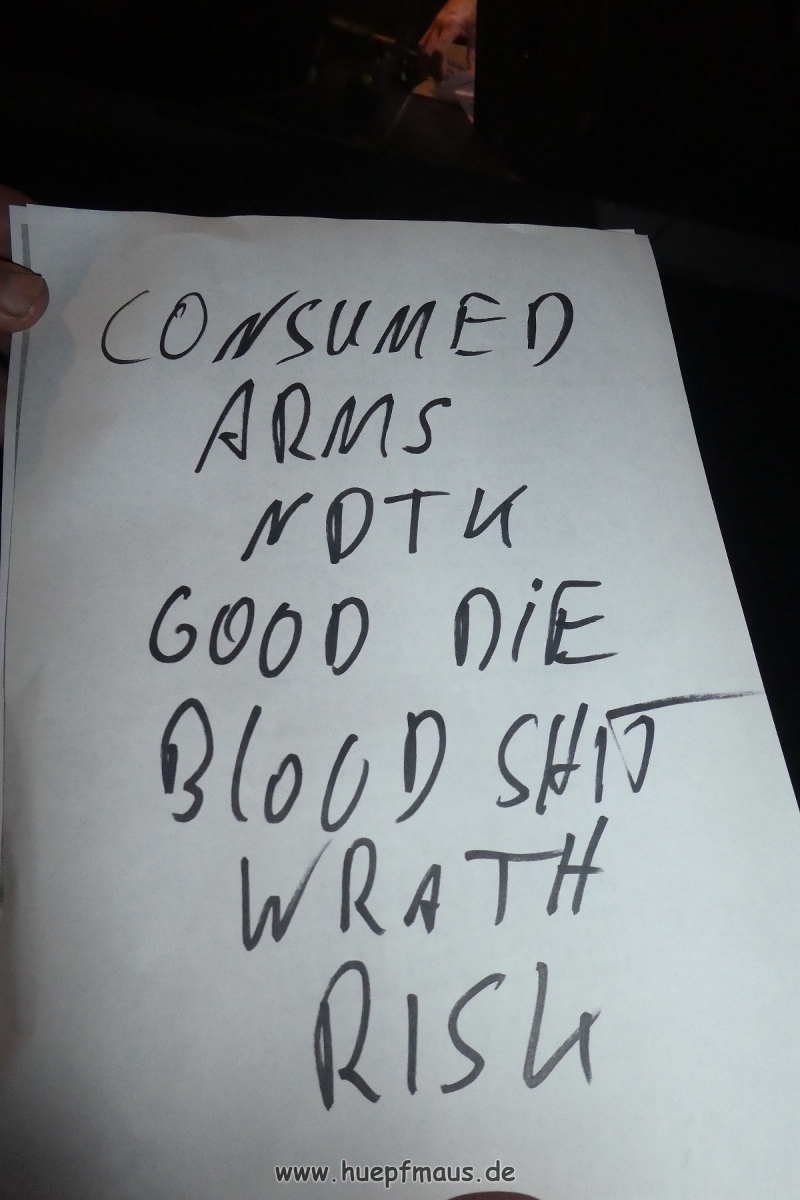 CONSUMED
ARMS
NDTK
GOOD DiE
BlOOD SHIT
WRATH
RISK
www.huepfmaus.de